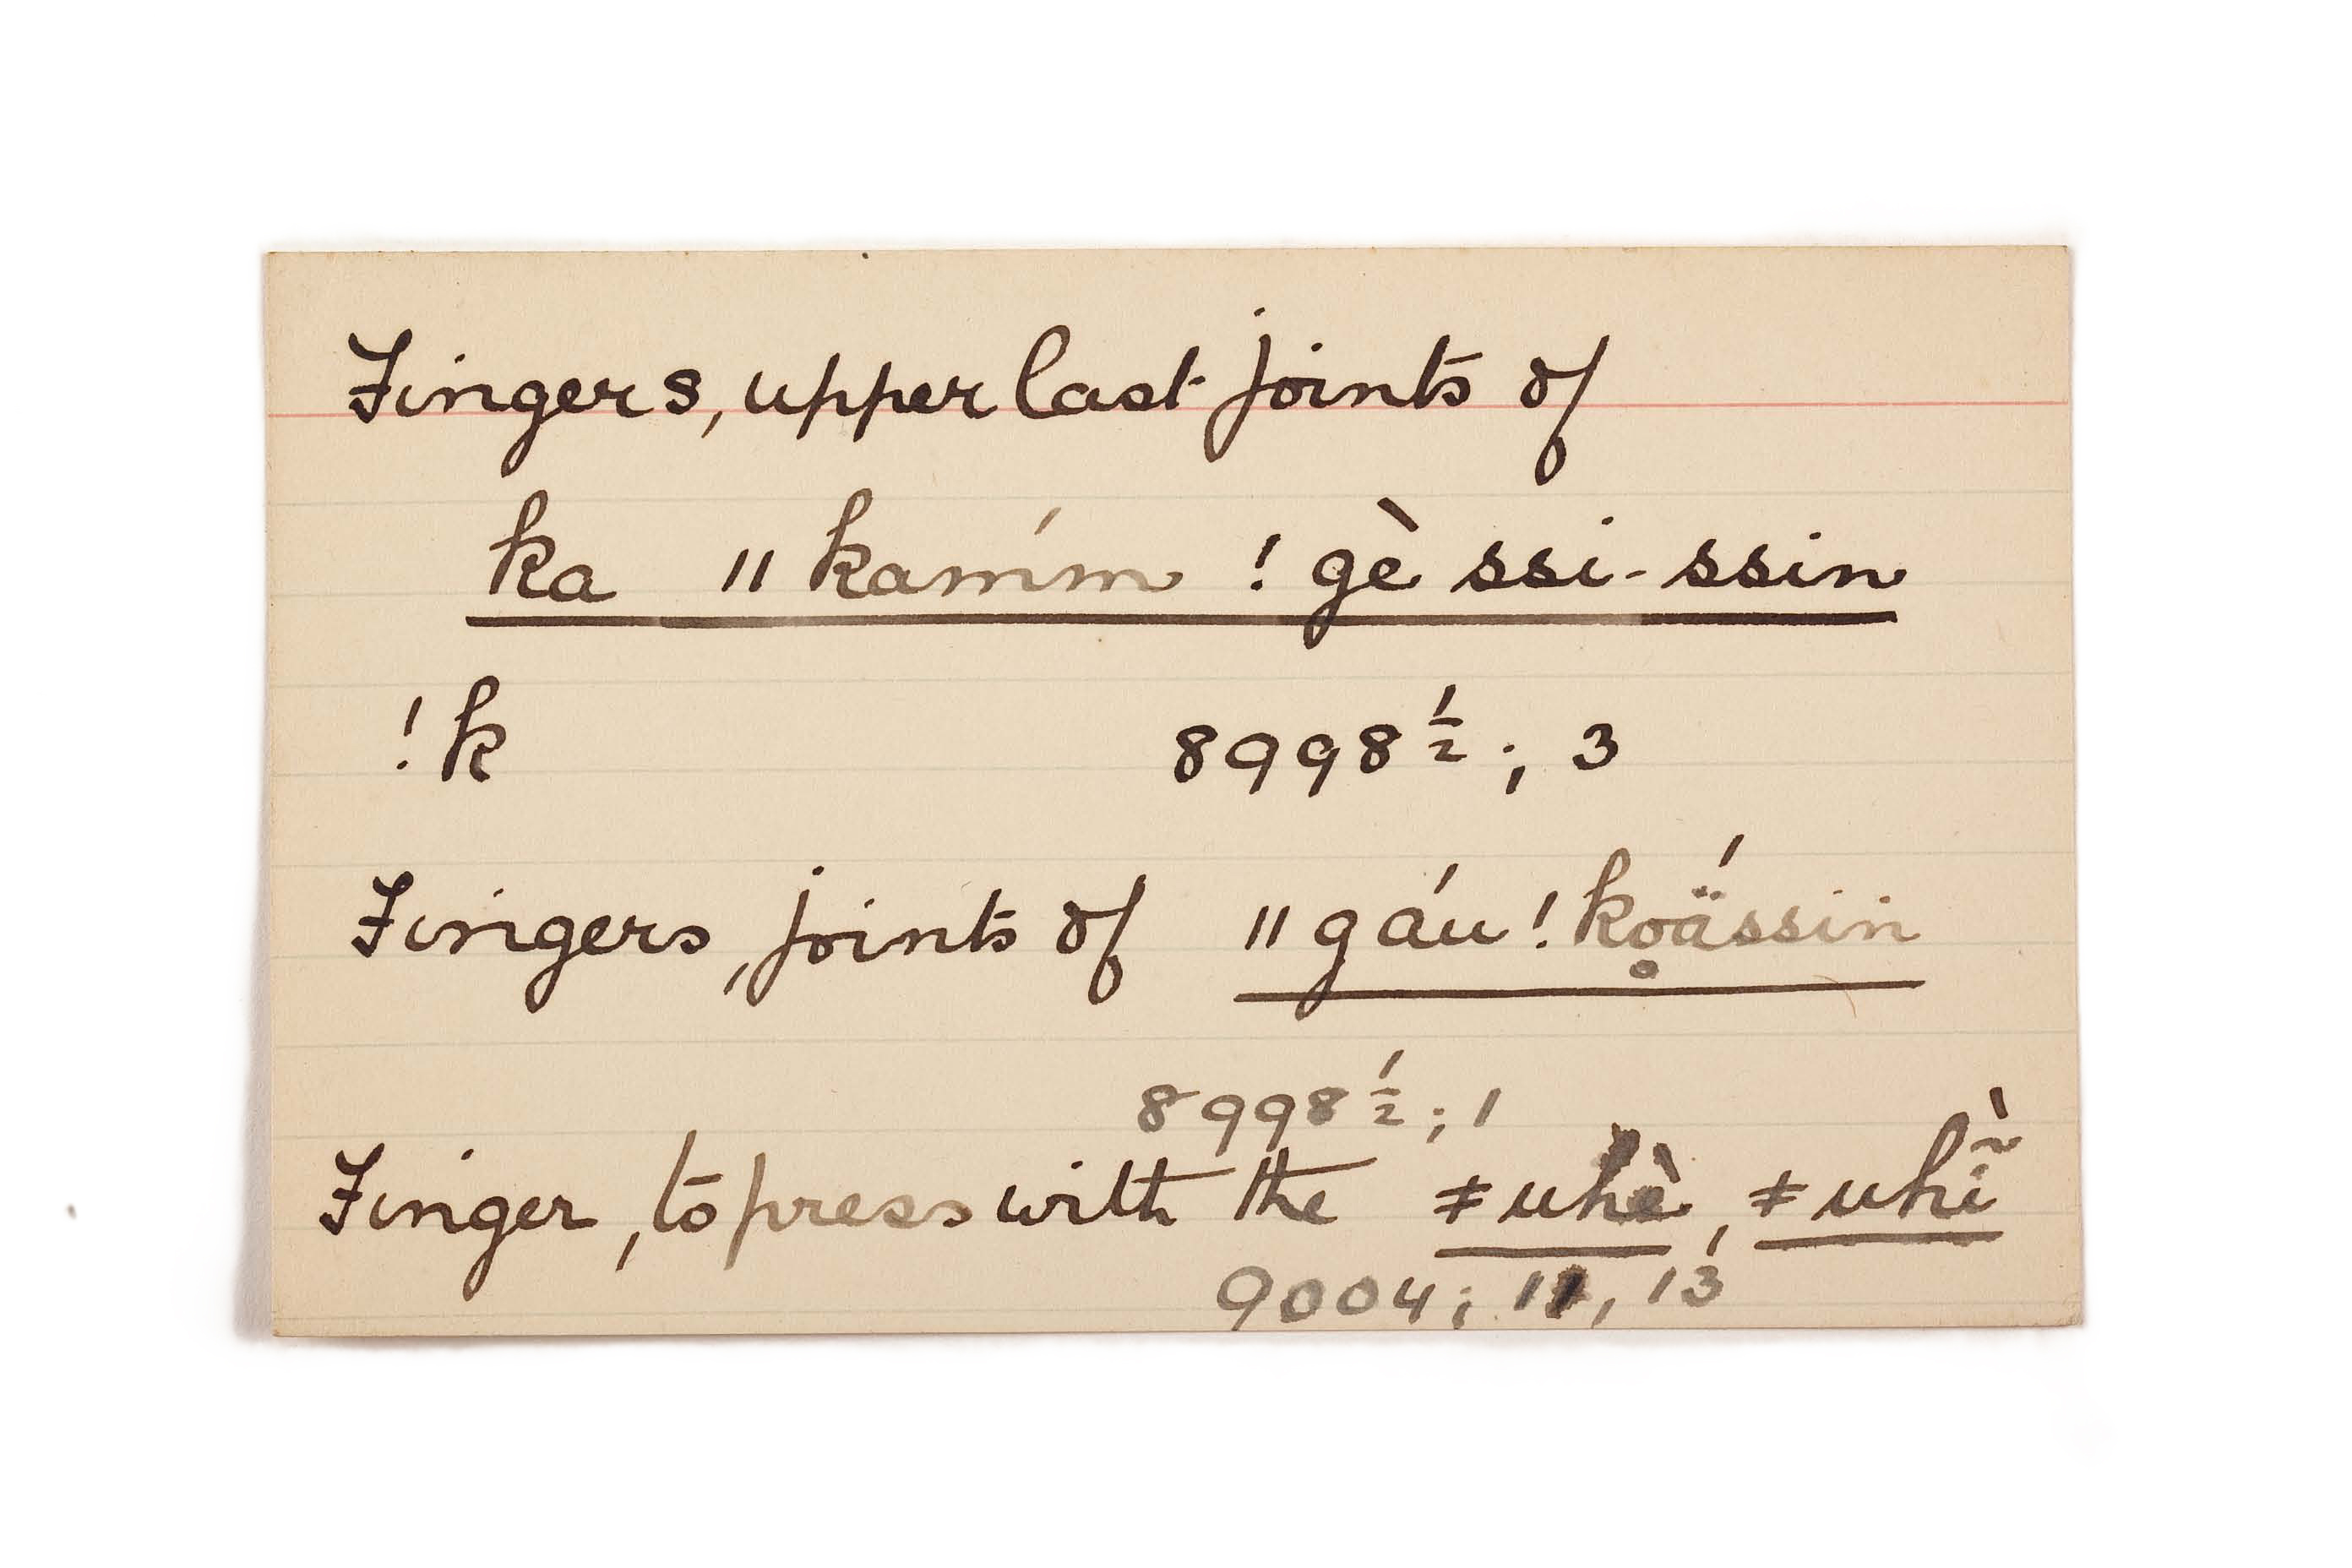 Fingers, upper last joints of
ka ǁkamḿ !gè ssi-ssin
!k 8998½; 3
Fingers, joints of ǁgáu!ko̥ä́ssin
8998½; 1
Finger, to press with the ǂuhè, ǂuhĩ̀
9004; 11, 13